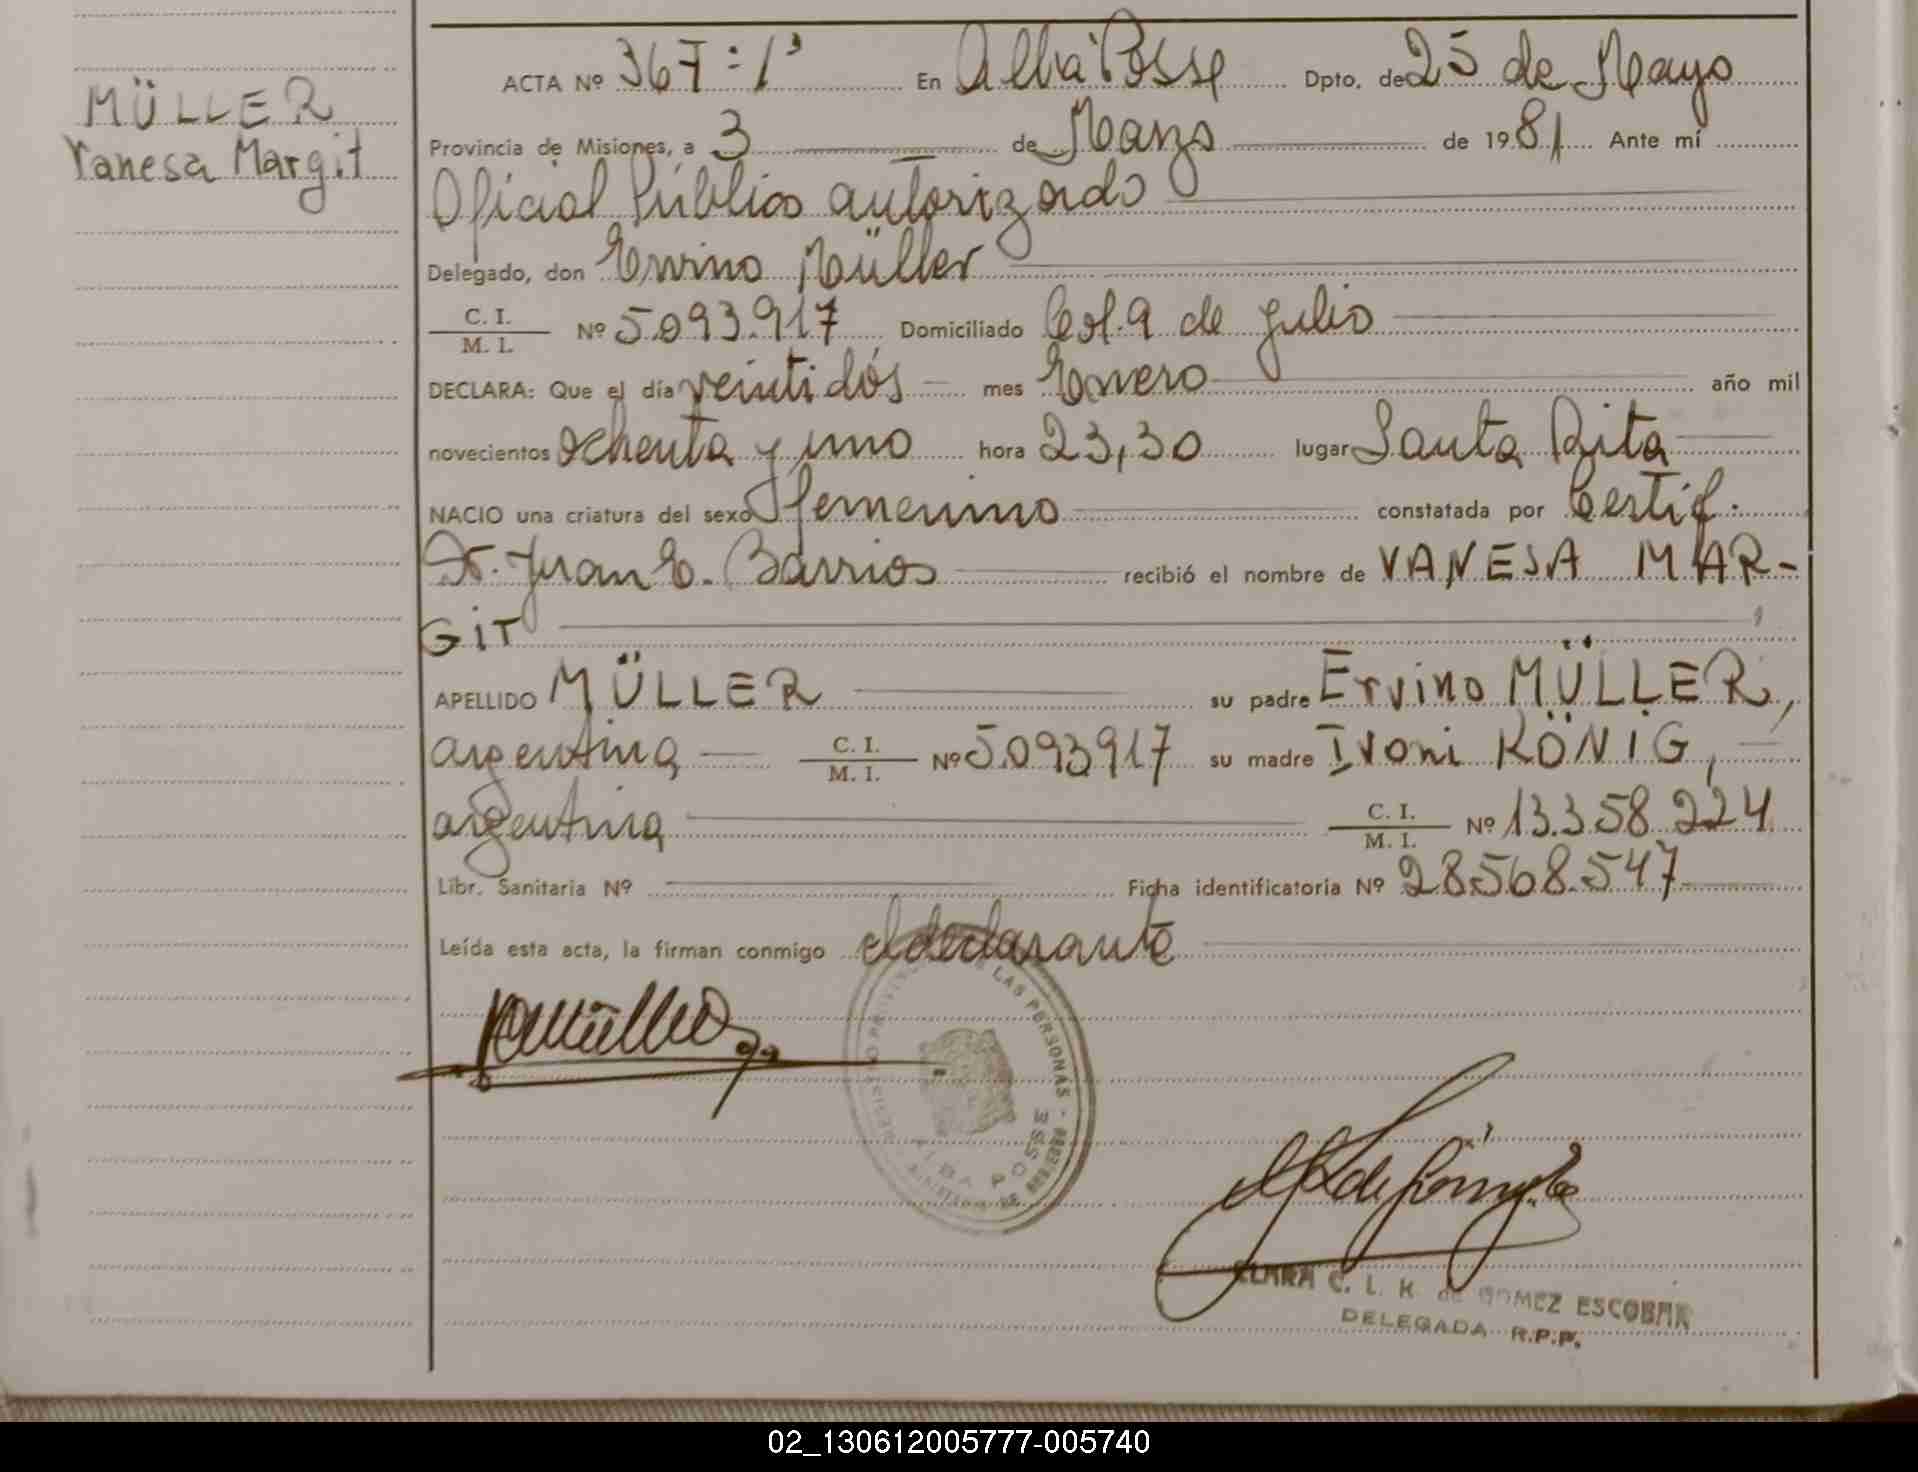 MÜLLER
Vanesa Margit
ACTA Nº 367=1ª En Alba Posse Dpto. de 25 de Mayo
Provincia de Misiones, a 3 de Marzo de 1981 Ante mí
Oficial Público autorizado
Delegado, don Ervino Müller
C. I. / M. I. Nº 5.093.917 Domiciliado Col. 9 de Julio
DECLARA: Que el día veintidós mes Enero año mil
novecientos ochenta y uno hora 23,30 lugar Santa Rita
NACIO una criatura del sexo femenino constatada por Certif.
Dr. Juan E. Barrios recibió el nombre de VANESA MAR-
GIT
APELLIDO MÜLLER su padre Ervino MÜLLER,
argentina C. I. / M. I. Nº 5.093917 su madre Ivoni KÖNIG,
argentina C. I. / M. I. Nº 13.358.224
Libr. Sanitaria Nº Ficha identificatoria Nº 28.568.547
Leída esta acta, la firman conmigo el declarante
DE LAS PERSONAS
ALBA POSSE
CLARA C. L. K. de GOMEZ ESCOBAR
DELEGADA R.P.P.
02_130612005777-005740